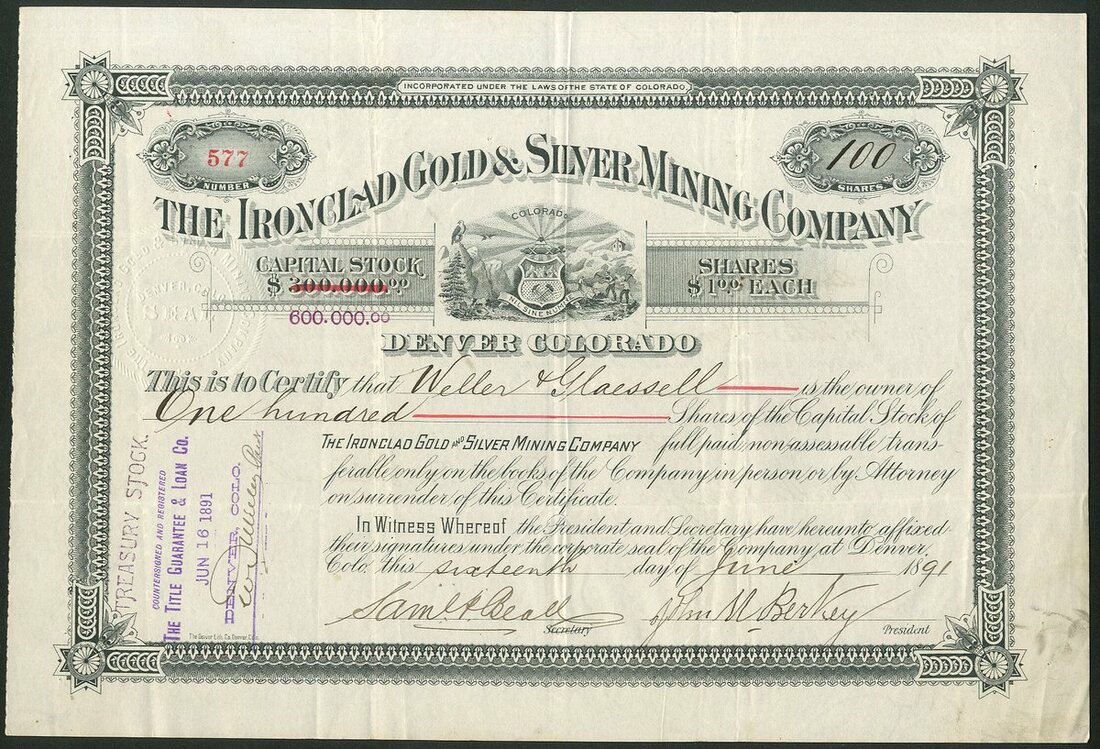 INCORPORATED UNDER THE LAWS OF THE STATE OF COLORADO
577
NUMBER
100
SHARES
THE IRONCLAD GOLD & SILVER MINING COMPANY
COLORADO
NIL SINE NUMINE
CAPITAL STOCK
$ 300.000.00
600.000.00
SHARES
$1.00 EACH
DENVER COLORADO
DENVER, COLO.
SEAL
This is to Certify that Weller & Glaessell is the owner of
One hundred Shares of the Capital Stock of
THE IRONCLAD GOLD AND SILVER MINING COMPANY full paid, non-assessable trans-
ferable only on the books of the Company in person or by Attorney
on surrender of this Certificate.
In Witness Whereof the President and Secretary have hereunto affixed
their signatures under the corporate seal of the Company, at Denver,
Colo. this sixteenth day of June 1891
Saml H Beall
Secretary
John M Berkey
President
TREASURY STOCK.
COUNTERSIGNED AND REGISTERED
THE TITLE GUARANTEE & LOAN CO.
JUN 16 1891
DENVER, COLO.
The Denver Lith. Co. Denver, Colo.